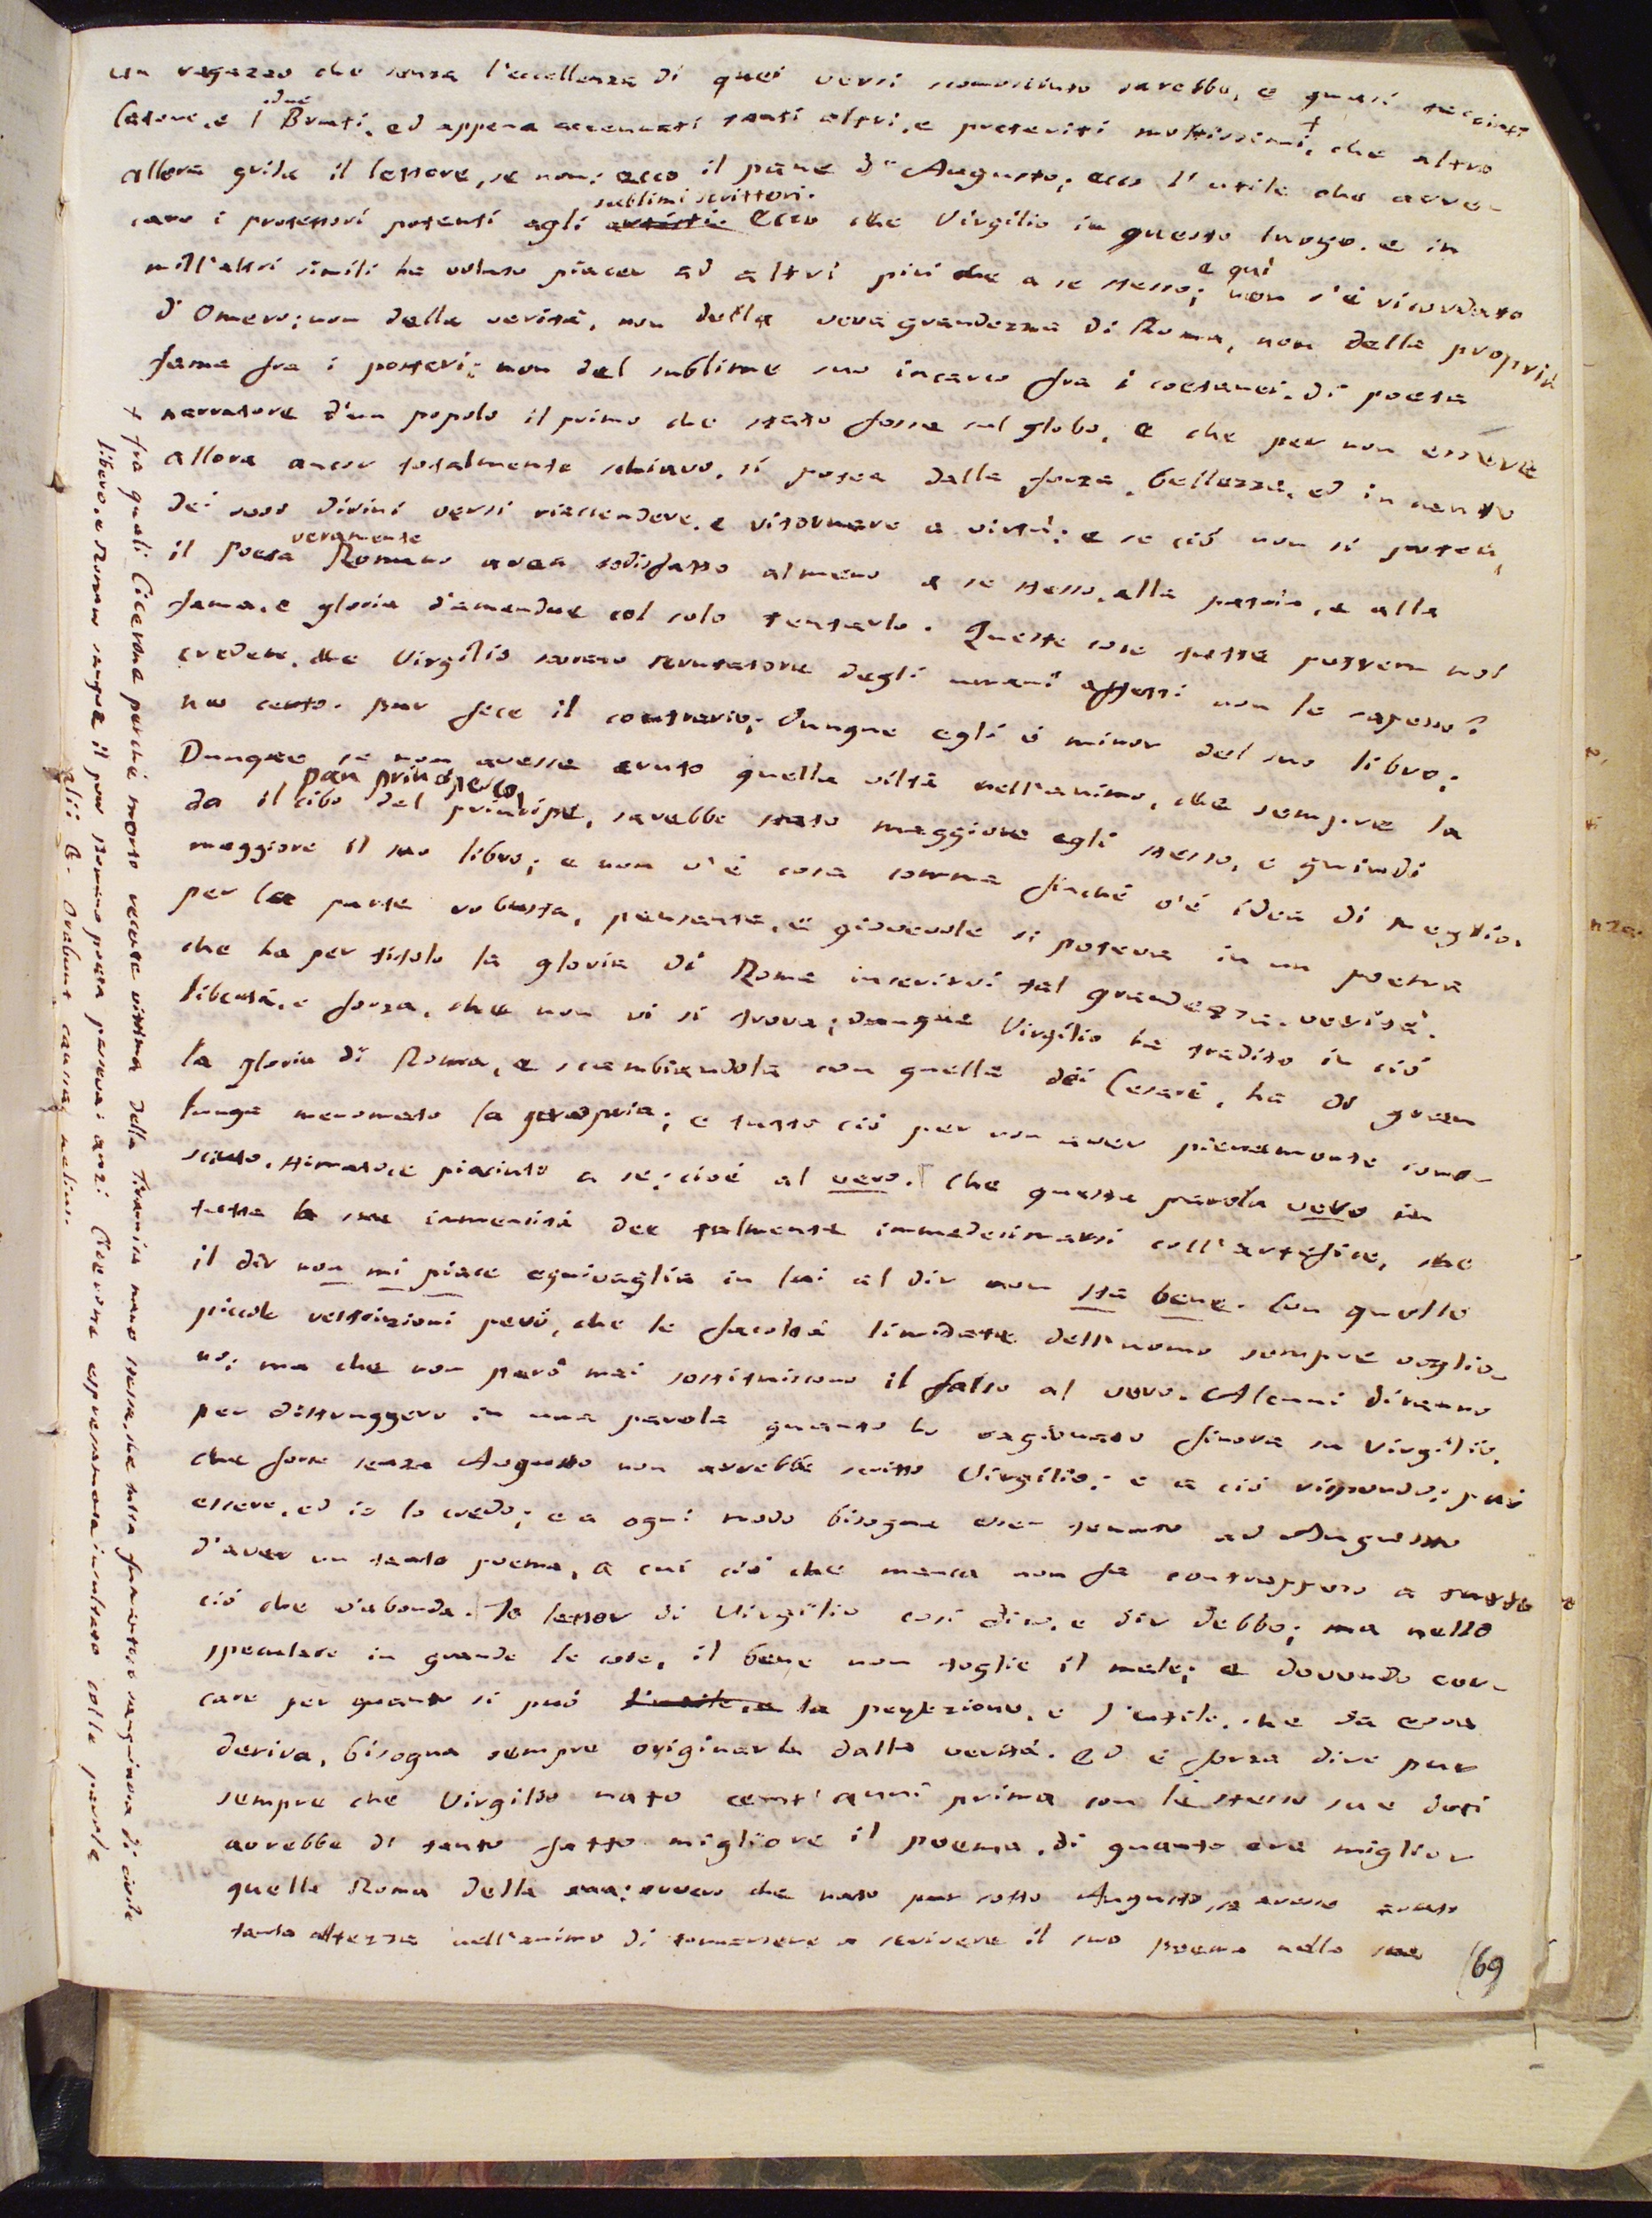 un ragazzo che senza l'eccellenza di quei versi sconosciuto sarebbe, e quasi tacciuti
Catone, e i due Bruti, ed appena accennati tanti altri, e preteriti moltissimi, + che altro
allora grida il lettore, se non: ecco il pane d'Augusto; ecco l'utile che arre-
cano i protettori potenti agli artisti sublimi scrittori. Ecco che Virgilio in questo luogo, e in
mill'altri simili ha voluto piacer ad altri più che a se stesso; e qui non s'è ricordato
d'Omero; non della verità, non della vera grandezza di Roma, non della propria
fama fra i posteri; non del sublime suo incarco fra i coetanei, di poeta
narratore d'un popolo il primo che stato fosse sul globo, e che per non essere
allora ancor totalmente schiavo, si potea dalla forza, bellezza, ed incanto
dei suoi divini versi riaccendere, e ritornare a virtù; e se ciò non si potea,
il poeta veramente Romano avea sodisfatto almeno a se stesso, alla patria, e alla
fama, e gloria d'amendue col solo tentarlo. Queste cose tutte potrem noi
credere, che Virgilio sovrano scrutatore degli umani affetti non le sapesse?
no certo. pur fece il contrario; dunque egli è minor del suo libro;
Dunque se non avesse avuto quella viltà nell'animo, che sempre la
da il cibo del principe pan principesco, sarebbe stato maggiore egli stesso, e quindi
maggiore il suo libro; e non v'è cosa somma finchè v'è idea di meglio.
per la parte robusta, pensante, e giovevole si poteva in un poema
che ha per titolo la gloria di Roma inserirvi tal grandezza, verità,
libertà, e forza, che non vi si trova; dunque Virgilio ha tradito in ciò
la gloria di Roma, e scambiandola con quella dei Cesari, ha di gran
lunga menomato la propria; e tutto ciò per non aver pienamente cono-
sciuto, stimato, e piaciuto a se; cioè al vero. Che questa parola vero in
tutta la sua immensità dee talmente immedesimarsi coll'artefice, che
il dir non mi piace equivaglia in lui al dir non sta bene. Con quelle
piccole restrizioni però, che le facoltà limitate dell'uomo sempre voglio-
no; ma che non però mai sostituiscono il falso al vero. Alcuni diranno
per distruggere in una parola quanto ho ragionato finora su Virgilio,
che forse senza Augusto non avrebbe scritto Virgilio: e a ciò rispondo: può
essere, ed io lo credo; e a ogni modo bisogna esser tenuto ad Augusto
d'aver un tanto poema, a cui ciò che manca non fa contrappeso a tutto
ciò che v'abonda. Io lettor di Virgilio così dico, e dir debbo; ma nello
specular in grande le cose, il bene non toglie il male; e dovendo cer-
care per quanto si può l'utile, e la perfezione, e l'utile, che da essa
deriva, bisogna sempre originarla dalla verità. Ed è forza dire pur
sempre che Virgilio nato cent'anni prima con le stesse sue doti
avrebbe di tanto fatto migliore il poema, di quanto era miglior
quella Roma della sua; ovvero che nato pur sotto Augusto, se avesse avuto
tanta altezza nell'animo di tornarsene a scrivere il suo poema nella sua
69
+ fra quali Cicerone perchè morto vittima della Tirannia mano stessa, che tutta sanguinosa di civile
libero, e Romano sangue il pur Romano poeta pasceva: anzi Cicerone espressamente insultato colle parole
alii &. Orabunt causas melius.